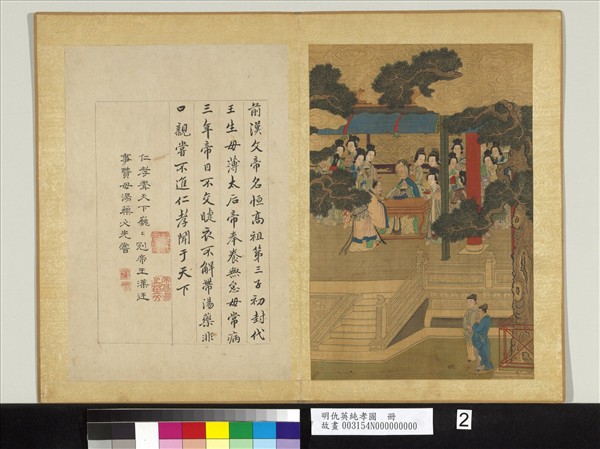 前漢文帝名恒高祖第三子初封代
王生母薄太后帝奉養無怠母常病
三年帝目不交睫衣不解帶湯藥非
口親嘗不進仁孝聞于天下
仁孝臨天下巍巍冠帝王漢廷
事賢母湯藥必先嘗
明仇英純孝圖 冊
故畫 003154N000000000
2